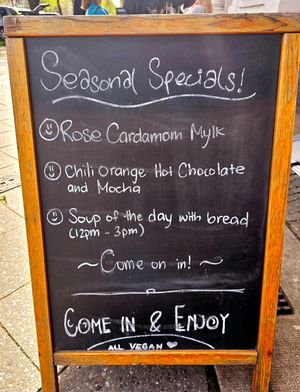 Seasonal Specials!
Rose Cardamom Mylk
Chili Orange Hot Chocolate
and Mocha
Soup of the day with bread
(12pm - 3pm)
~Come on in!~
COME IN & ENJOY
ALL VEGAN